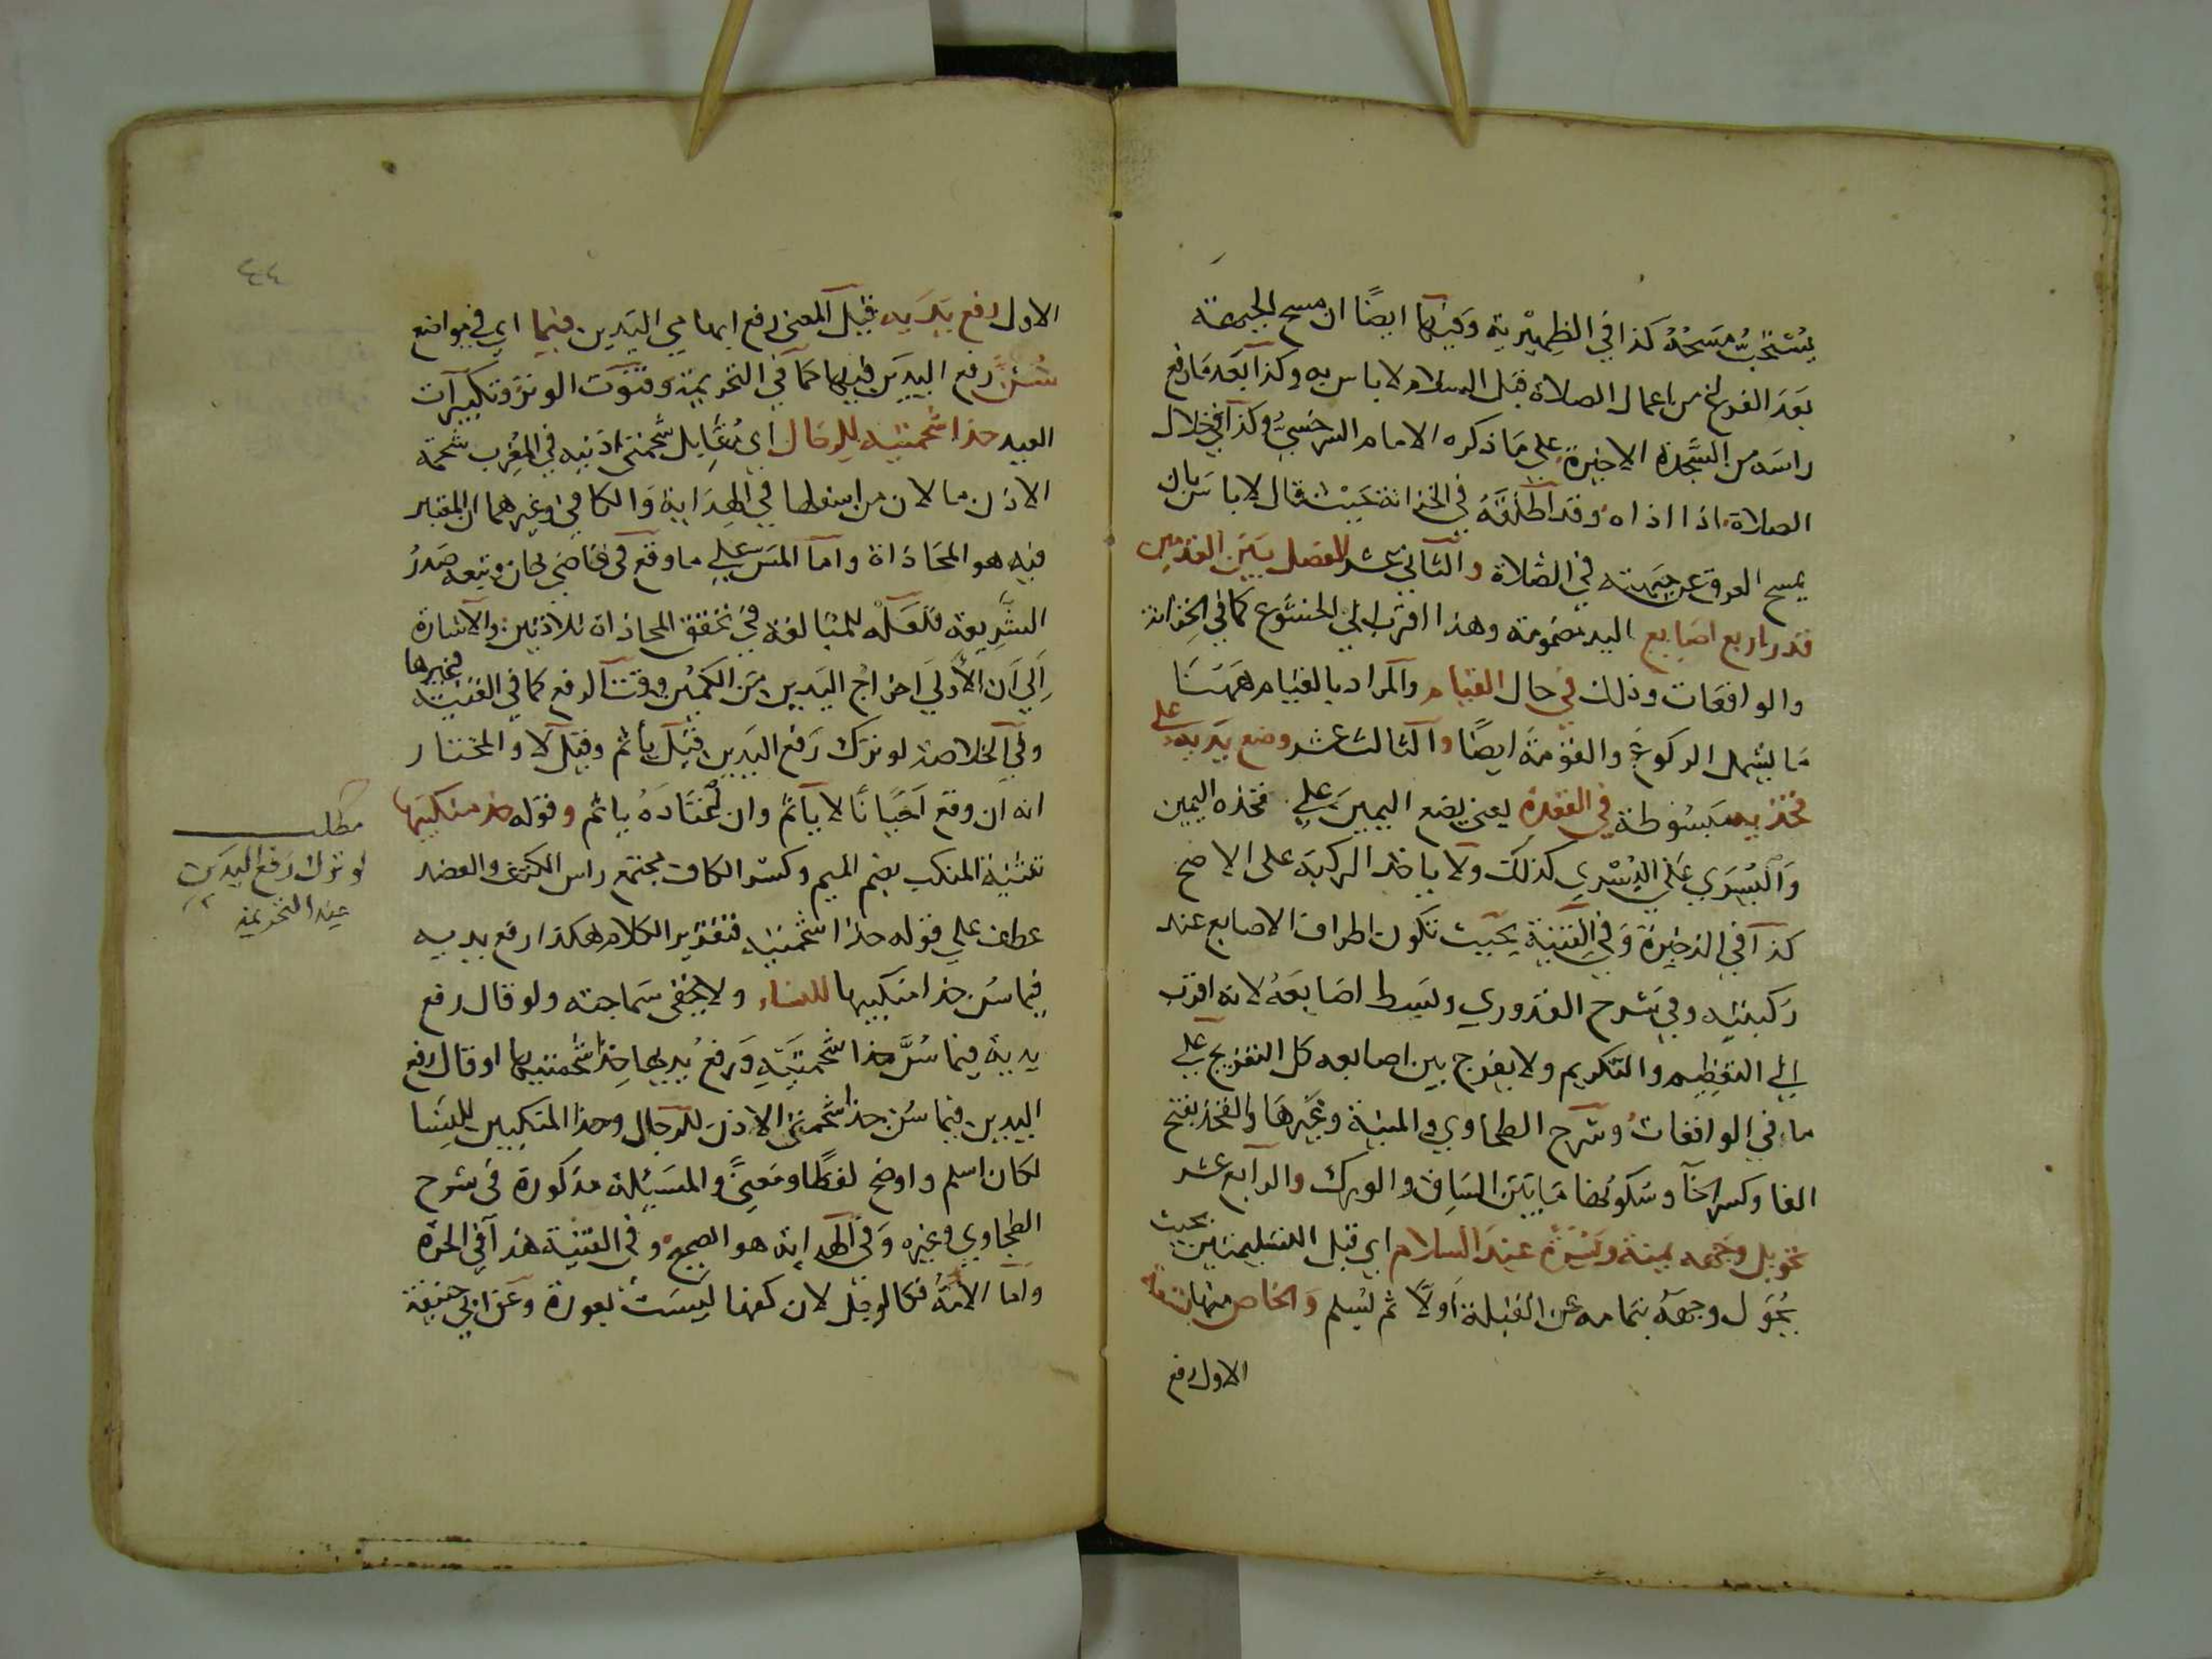 يستحب مسحه كذا في الظهيرية وفيها ايضا ان مسح الجبهة
بعد الفراغ من اعمال الصلاة قبل السلام لا باس به وكذا بعد ما رفع
راسه من السجدة الاخيرة على ما ذكره الامام السرخسي وكذا في خلال
الصلاة اذا اذاه وقد اطلقه في الخزانة حيث قال لا باس بان
يمسح العرق عن جبهته في الصلاة والثاني عشر الفصل بين القدمين
قدر اربع اصابع اليد مضمومة وهذا اقرب الى الخشوع كما في الخزانة
والواقعات وذلك في حال القيام والمراد بالقيام ههنا
ما يشمل الركوع والقومة ايضا والثالث عشر وضع يديه على
فخذيه مبسوطة في القعدة يعني يضع اليمين على فخذه اليمين
واليسرى على اليسرى كذلك ولا ياخذ الركبة على الاصح
كذا في الذخيرة وفي القنية بحيث تكون اطراف الاصابع عند
ركبتيه وفي شرح القدوري وليبسط اصابعه لانه اقرب
الى التعظيم والتكريم ولا يفرج بين اصابعه كل التفريج على
ما في الواقعات وشرح الطحاوي والمنية وغيرها والفخذ بفتح
الفا وكسر الخا وسكونها ما بين الساق والورك والرابع عشر
تحويل وجهه يمنة ويسرة عند السلام اي قبل التسليمتين بحيث
يحول وجهه بتمامه عن القبلة اولا ثم يسلم والخاص منها
الاول رفع
٤٤
الاول رفع يديه قيل المعنى رفع ابهامي اليدين فيما اي في مواضع
سُنَّ رفع اليدين فيها كما في التحريمة وقنوت الوتر وتكبيرات
العيد حذا شحمتيه للرجال اي يقابل شحمتي اذنيه في المغرب شحمة
الاذن ما لان من اسفلها في الهداية والكافي وغيرهما ان المعتبر
فيه هو المحاذاة واما المس على ما وقع في قاضي خان وتبعه صدر
الشريعة فلعله للمبالغة في تحقق المحاذاة للاذنين والاشارة
الى ان الاولى اخراج اليدين من الكمين وقت الرفع كما في القنية وغيرها
وفي الخلاصة لو ترك رفع اليدين قيل يأثم وقيل لا والمختار
انه ان وقع احيانا لا يأثم وان اعتاده ياثم وقوله حذ منكبيها
تثنية المنكب بضم الميم وكسر الكاف مجتمع راس الكتف والعضد
عطف على قوله حذا شحمتيه فتقدير الكلام هكذا رفع يديه
فيما سن حذا منكبيها للنساء ولا يخفى سماجته ولو قال رفع
يديه فيما سُنَّ حذا شحمتيه ورفع يديها حذا شحمتيها او قال رفع
اليدين فيما سن حذا شحمتي الاذن للرجال وحذا المنكبين للنسا
لكان اسلم واوضح لفظا ومعنى والمسئلة مذكورة في شرح
الطحاوي وغيره وفي الهداية هو الصحيح وفي القنية هذا في الحرة
واما الامة فكالرجل لان كفها ليست بعورة وعن ابي حنيفة
مطلب
لو ترك رفع اليدين
عند التحريمة